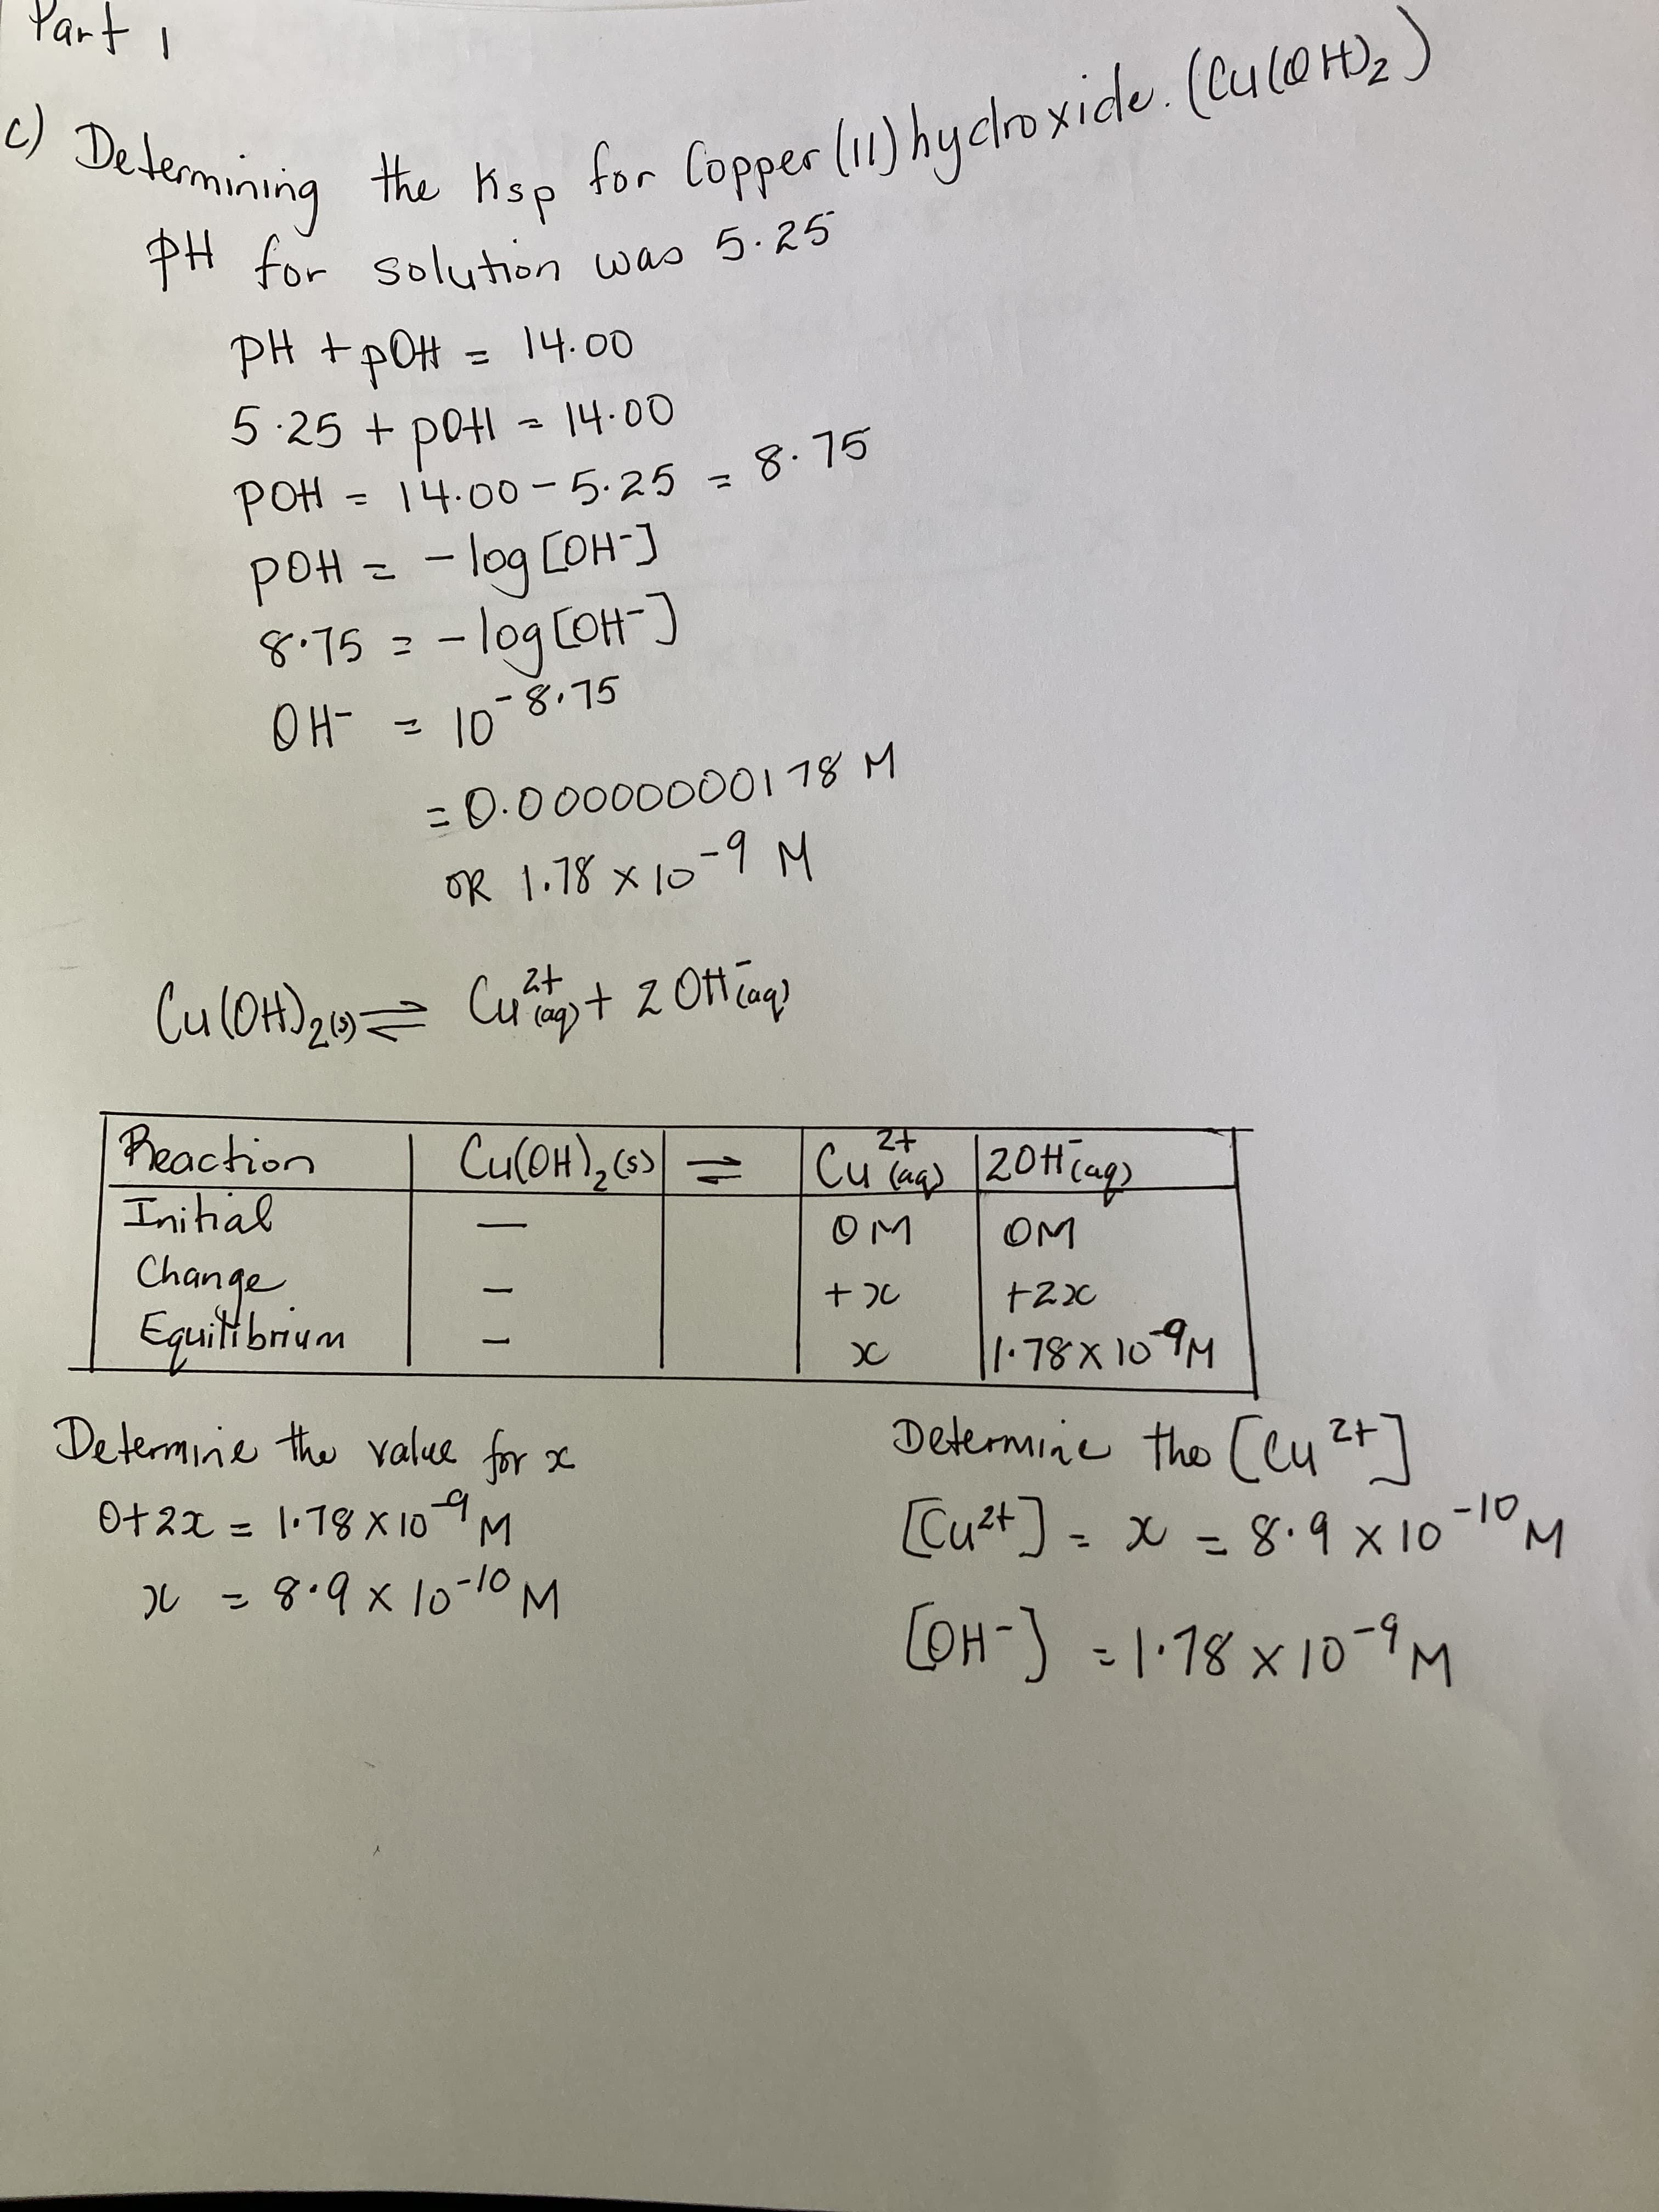 Part 1
c) Determining the Ksp for Copper (11) hydroxide. (Cu(OH)₂)
pH for solution was 5.25
pH + pOH = 14.00
5.25 + pOH = 14.00
pOH = 14.00 - 5.25 = 8.75
pOH = -log [OH⁻]
8.75 = -log [OH⁻]
OH⁻ = 10⁻⁸·⁷⁵
= 0.00000000178 M
OR 1.78 x 10⁻⁹ M
Cu(OH)₂(s) ⇌ Cu²⁺(aq) + 2OH⁻(aq)
Reaction Cu(OH)₂(s) ⇌ Cu²⁺(aq) 2OH⁻(aq)
Initial — 0M 0M
Change - +x +2x
Equilibrium - x 1.78 x 10⁻⁹M
Determine the value for x
0+2x = 1.78 x 10⁻⁹ M
x = 8.9 x 10⁻¹⁰ M
Determine the [Cu²⁺]
[Cu²⁺] = x = 8.9 x 10⁻¹⁰ M
[OH⁻] = 1.78 x 10⁻⁹ M